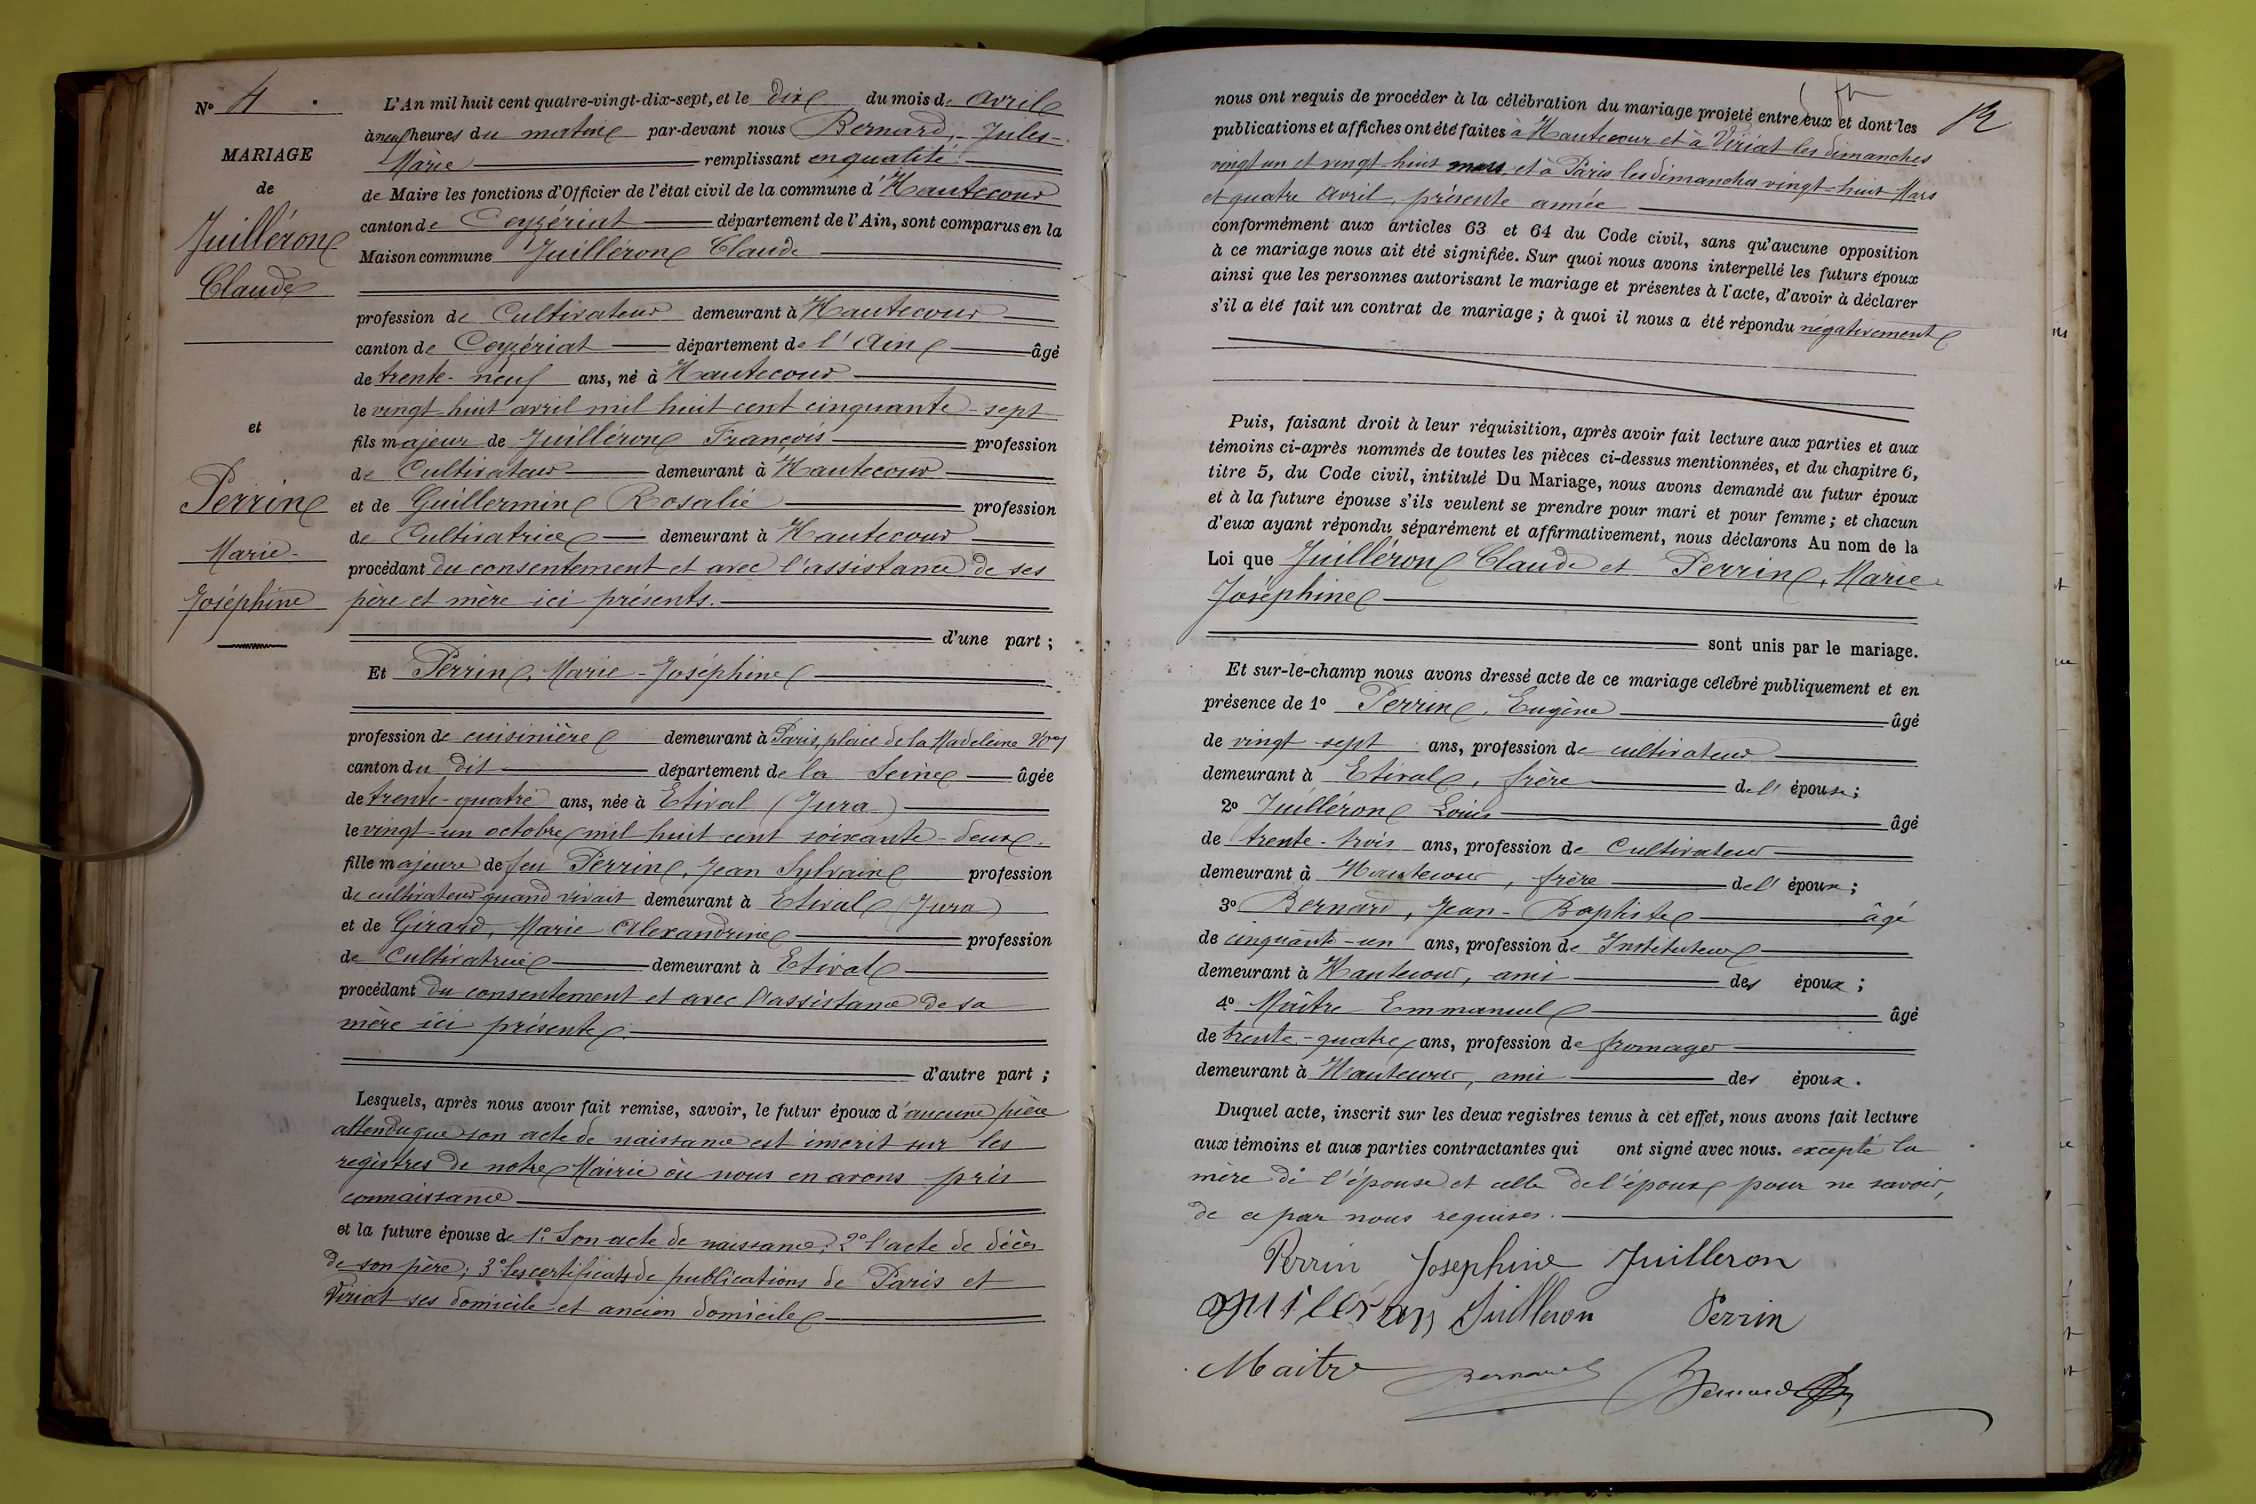 N° 4
MARIAGE
de
Juilléron
Claude
et
Perrin
Marie-
Joséphine
L'An mil huit cent quatre-vingt-dix-sept, et le dix du mois de avril
à neuf heures du matin par-devant nous Bernard, Jules-
Marie remplissant en qualité
de Maire les fonctions d'Officier de l'état civil de la commune d'Hautecour
canton de Ceyzériat département de l'Ain, sont comparus en la
Maison commune Juilléron Claude
profession de Cultivateur demeurant à Hautecour
canton de Ceyzériat département de l'Ain âgé
de trente-neuf ans, né à Hautecour
le vingt-huit avril mil huit cent cinquante-sept
fils majeur de Juilléron François profession
de Cultivateur demeurant à Hautecour
et de Guillermin Rosalie profession
de Cultivatrice demeurant à Hautecour
procédant du consentement et avec l'assistance de ses
père et mère ici présents.
d'une part ;
Et Perrin, Marie-Joséphine
profession de cuisinière demeurant à Paris, place de la Madeleine
canton du dit département de la Seine âgée
de trente-quatre ans, née à Etival (Jura)
le vingt-un octobre mil huit cent soixante-deux.
fille majeure de feu Perrin, Jean Sylvain profession
de cultivateur quand vivait demeurant à Etival (Jura)
et de Girard, Marie Alexandrine profession
de Cultivatrice demeurant à Etival
procédant du consentement et avec l'assistance de sa
mère ici présente.
d'autre part ;
Lesquels, après nous avoir fait remise, savoir, le futur époux d'aucune pièce
attendu que son acte de naissance est inscrit sur les
registres de notre Mairie où nous en avons pris
connaissance
et la future épouse de 1° Son acte de naissance; 2° l'acte de décès
de son père; 3° les certificats de publications de Paris et
Viriat ses domicile et ancien domicile
nous ont requis de procéder à la célébration du mariage projeté entre eux et dont les
publications et affiches ont été faites à Hautecour et à Viriat les dimanches
vingt un et vingt-huit mars et à Paris les dimanches vingt-huit Mars
et quatre avril, présente année
conformément aux articles 63 et 64 du Code civil, sans qu'aucune opposition
à ce mariage nous ait été signifiée. Sur quoi nous avons interpellé les futurs époux
ainsi que les personnes autorisant le mariage et présentes à l'acte, d'avoir à déclarer
s'il a été fait un contrat de mariage ; à quoi il nous a été répondu négativement
Puis, faisant droit à leur réquisition, après avoir fait lecture aux parties et aux
témoins ci-après nommés de toutes les pièces ci-dessus mentionnées, et du chapitre 6,
titre 5, du Code civil, intitulé Du Mariage, nous avons demandé au futur époux
et à la future épouse s'ils veulent se prendre pour mari et pour femme ; et chacun
d'eux ayant répondu séparément et affirmativement, nous déclarons Au nom de la
Loi que Juilléron Claude et Perrin, Marie-
Joséphine
sont unis par le mariage.
Et sur-le-champ nous avons dressé acte de ce mariage célébré publiquement et en
présence de 1° Perrin, Eugène âgé
de vingt-sept ans, profession de cultivateur
demeurant à Etival, frère de l'épouse ;
2° Juilléron Louis âgé
de trente-trois ans, profession de Cultivateur
demeurant à Hautecour, frère de l'époux ;
3° Bernard, Jean-Baptiste âgé
de cinquante-un ans, profession de Instituteur
demeurant à Hautecour, ami des époux ;
4° Maître Emmanuel âgé
de trente-quatre ans, profession de fromager
demeurant à Hautecour, ami des époux.
Duquel acte, inscrit sur les deux registres tenus à cet effet, nous avons fait lecture
aux témoins et aux parties contractantes qui ont signé avec nous. excepté la
mère de l'épouse et celle de l'époux pour ne savoir,
de ce par nous requises.
Perrin Josephine Juilleron
Juilleron Perrin
Maitre Bernard Bernard